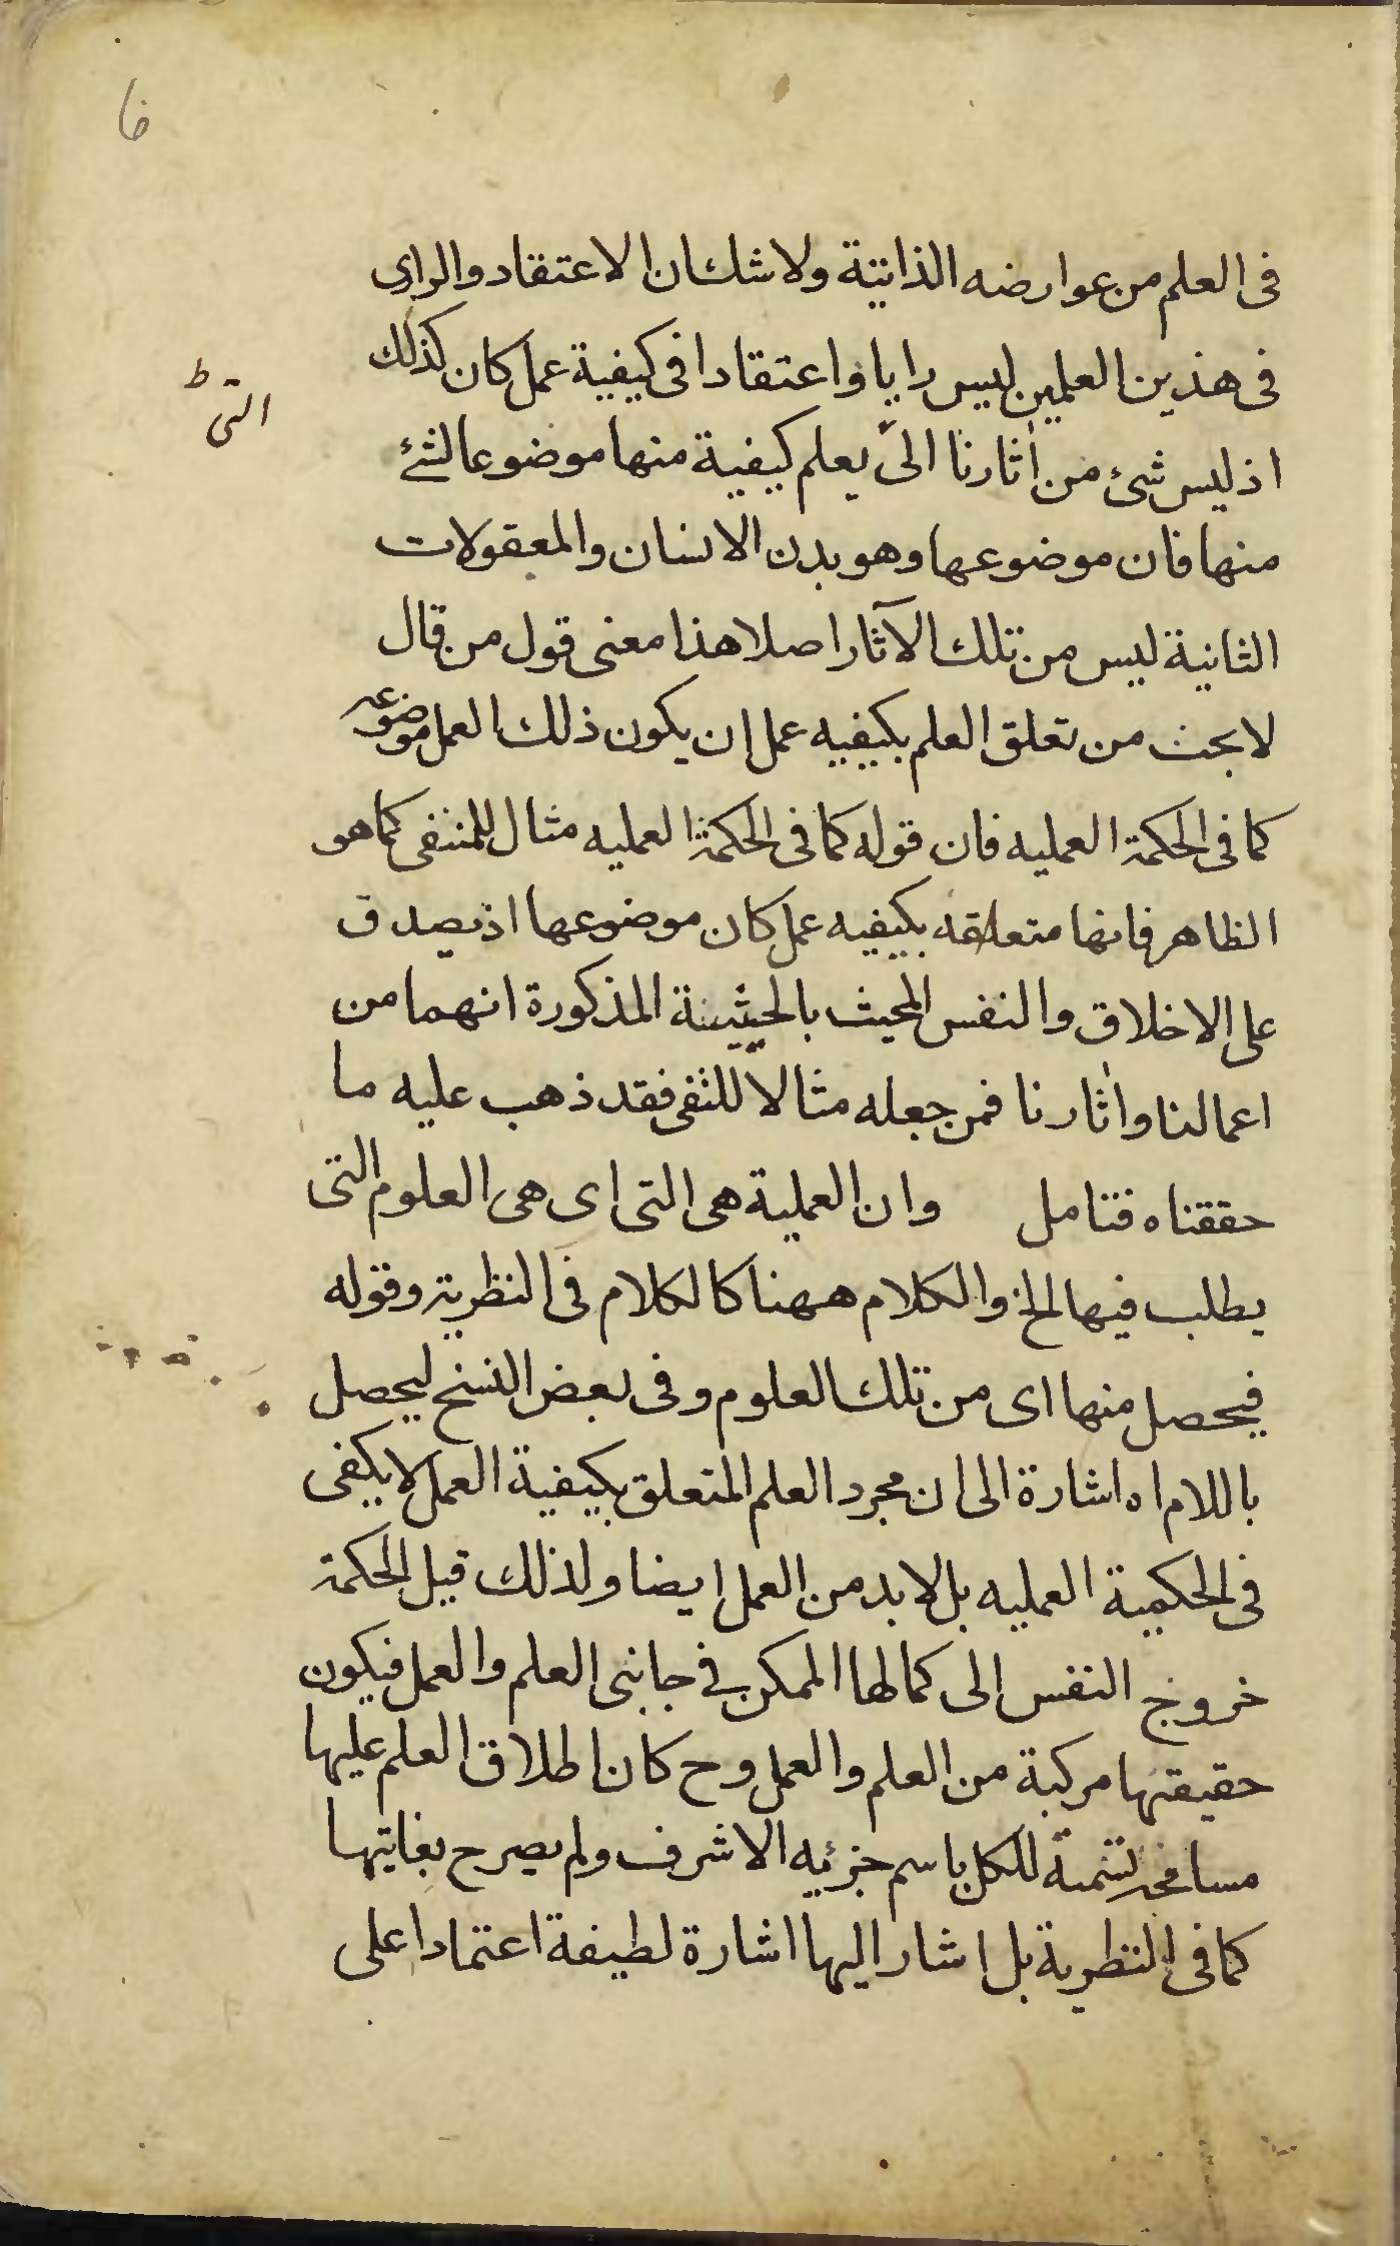 فى العلم من عوارضه الذاتية ولا شك ان الاعتقاد والراى
فى هذين العلمين ليس رايا واعتقادا فى كيفية عمل كان كذلك
التى
اذ ليس شئ من اثارنا الى يعلم كيفية منها موضوعا لشئ
منها فان موضوعها وهو بدن الانسان والمعقولات
الثانية ليس من تلك الآثار اصلا هذا معنى قول من قال
لا يجب من تعلق العلم بكيفيه عمل ان يكون ذلك العمل موضوعه
كما فى الحكمة العمليه فان قوله كما فى الحكمة العمليه مثال للمنفى كما هو
الظاهر فانها متعلقه بكيفيه عمل كان موضوعها اذ يصدق
على الاخلاق والنفس المحيث بالحيثية المذكورة انهما من
اعمالنا واثارنا فمن جعله مثالا للنفى فقد ذهب عليه ما
حققناه فتامل وان العملية هى التى اى هى العلوم التى
يطلب فيها الخ والكلام ههنا كالكلام فى النظرية وقوله
فيحصل منها اى من تلك العلوم وفى بعض النسخ ليحصل
باللام اه اشارة الى ان مجرد العلم المتعلق بكيفية العمل لا يكفى
فى الحكمية العمليه بل لا بد من العمل ايضا ولذلك قيل الحكمة
خروج النفس الى كمالها الممكن فى جانبى العلم والعمل فيكون
حقيقتها مركبة من العلم والعمل وح كان اطلاق العلم عليها
مسامحة تسمية للكل باسم جزئيه الاشرف ولم يصرح بغايتها
كما فى النظرية بل اشار اليها اشارة لطيفة اعتمادا على